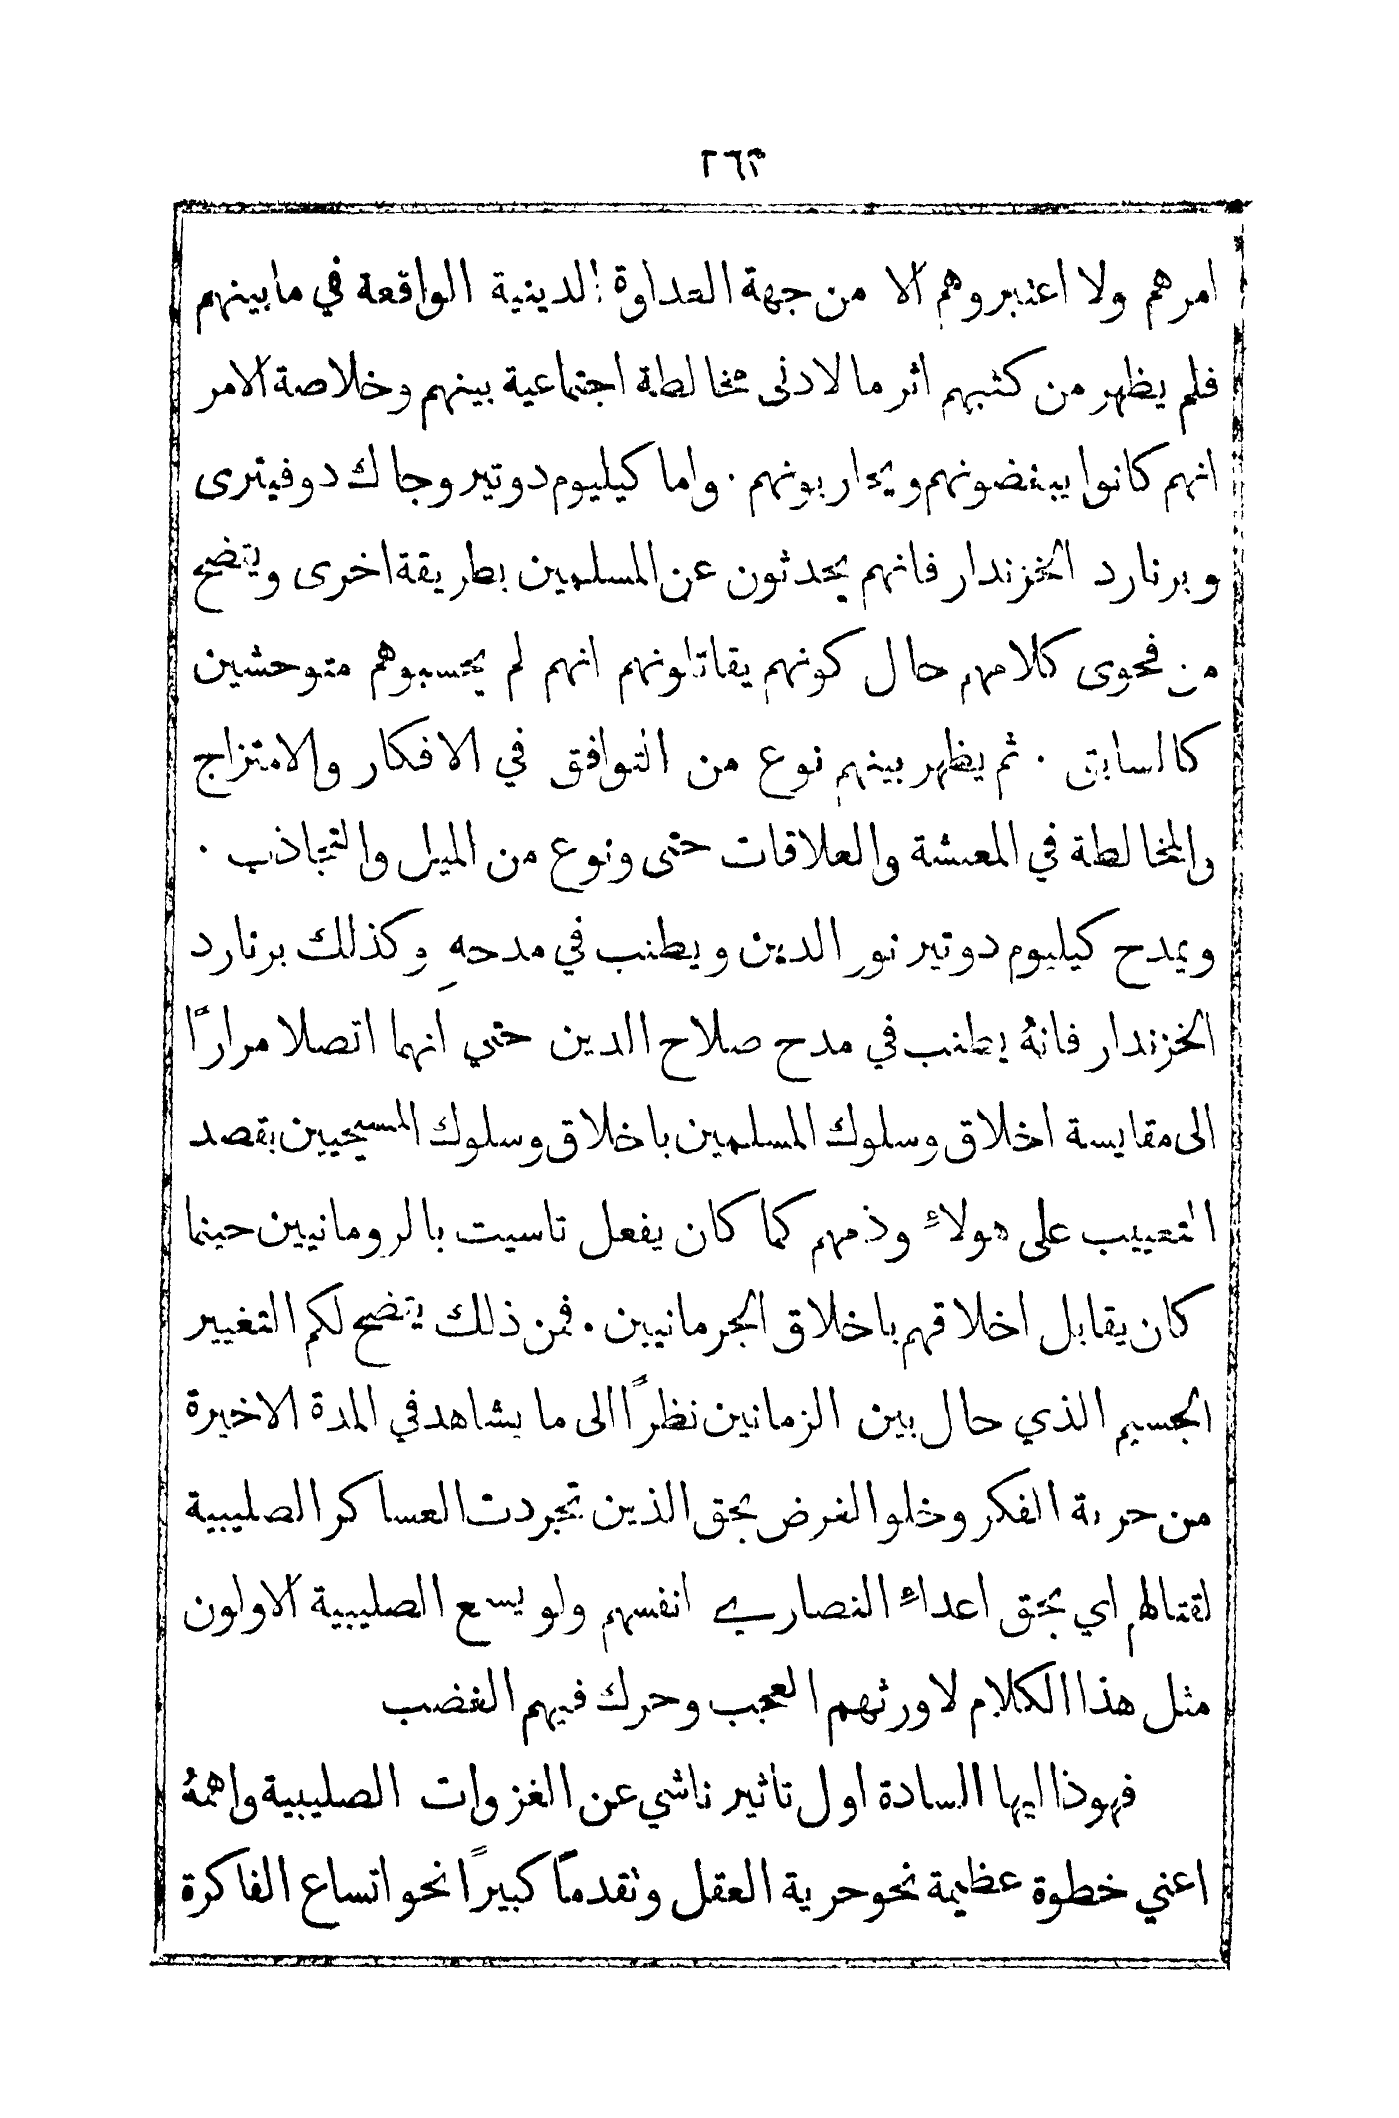 ٢٦٣
امرهم ولا اعتبروهم الا من جهة العداوة الدينية الواقعة في ما بينهم
فلم يظهر من كتبهم اثر ما لادنى مخالطة اجتماعية بينهم وخلاصة الامر
انهم كانوا يبغضونهم ويحاربونهم . واما كيليوم دوتير وجاك دوفيترى
وبرنارد الخزندار فانهم يحدثون عن المسلمين بطريقة اخرى ويتضح
من فحوى كلامهم حال كونهم يقاتلونهم انهم لم يحسبوهم متوحشين
كالسابق . ثم يظهر بينهم نوع من التوافق في الافكار والامتزاج
والمخالطة في المعيشة والعلاقات حتى ونوع من الميل والتجاذب .
ويمدح كيليوم دوتير نور الدين ويطنب في مدحهِ وكذلك برنارد
الخزندار فانهُ يطنب في مدح صلاح الدين حتى انهما اتصلا مرارًا
الى مقايسة اخلاق وسلوك المسلمين باخلاق وسلوك المسيحيين بقصد
التعييب على هولاءِ وذمهم كما كان يفعل تاسيت بالرومانيين حينما
كان يقابل اخلاقهم باخلاق الجرمانيين . فمن ذلك يتضح لكم التغيير
الجسيم الذي حال بين الزمانين نظرًا الى ما يشاهد في المدة الاخيرة
من حرية الفكر وخلو الغرض بحق الذين تجردت العساكر الصليبية
لقتالهم اي بحق اعداءِ النصارى انفسهم ولو يسمع الصليبية الاولون
مثل هذا الكلام لاورثهم العجب وحرك فيهم الغضب
فهوذا ايها السادة اول تاثير ناشي عن الغزوات الصليبية واهمهُ
اعني خطوة عظيمة نحو حرية العقل وتقدمًا كبيرًا نحو اتساع الفاكرة